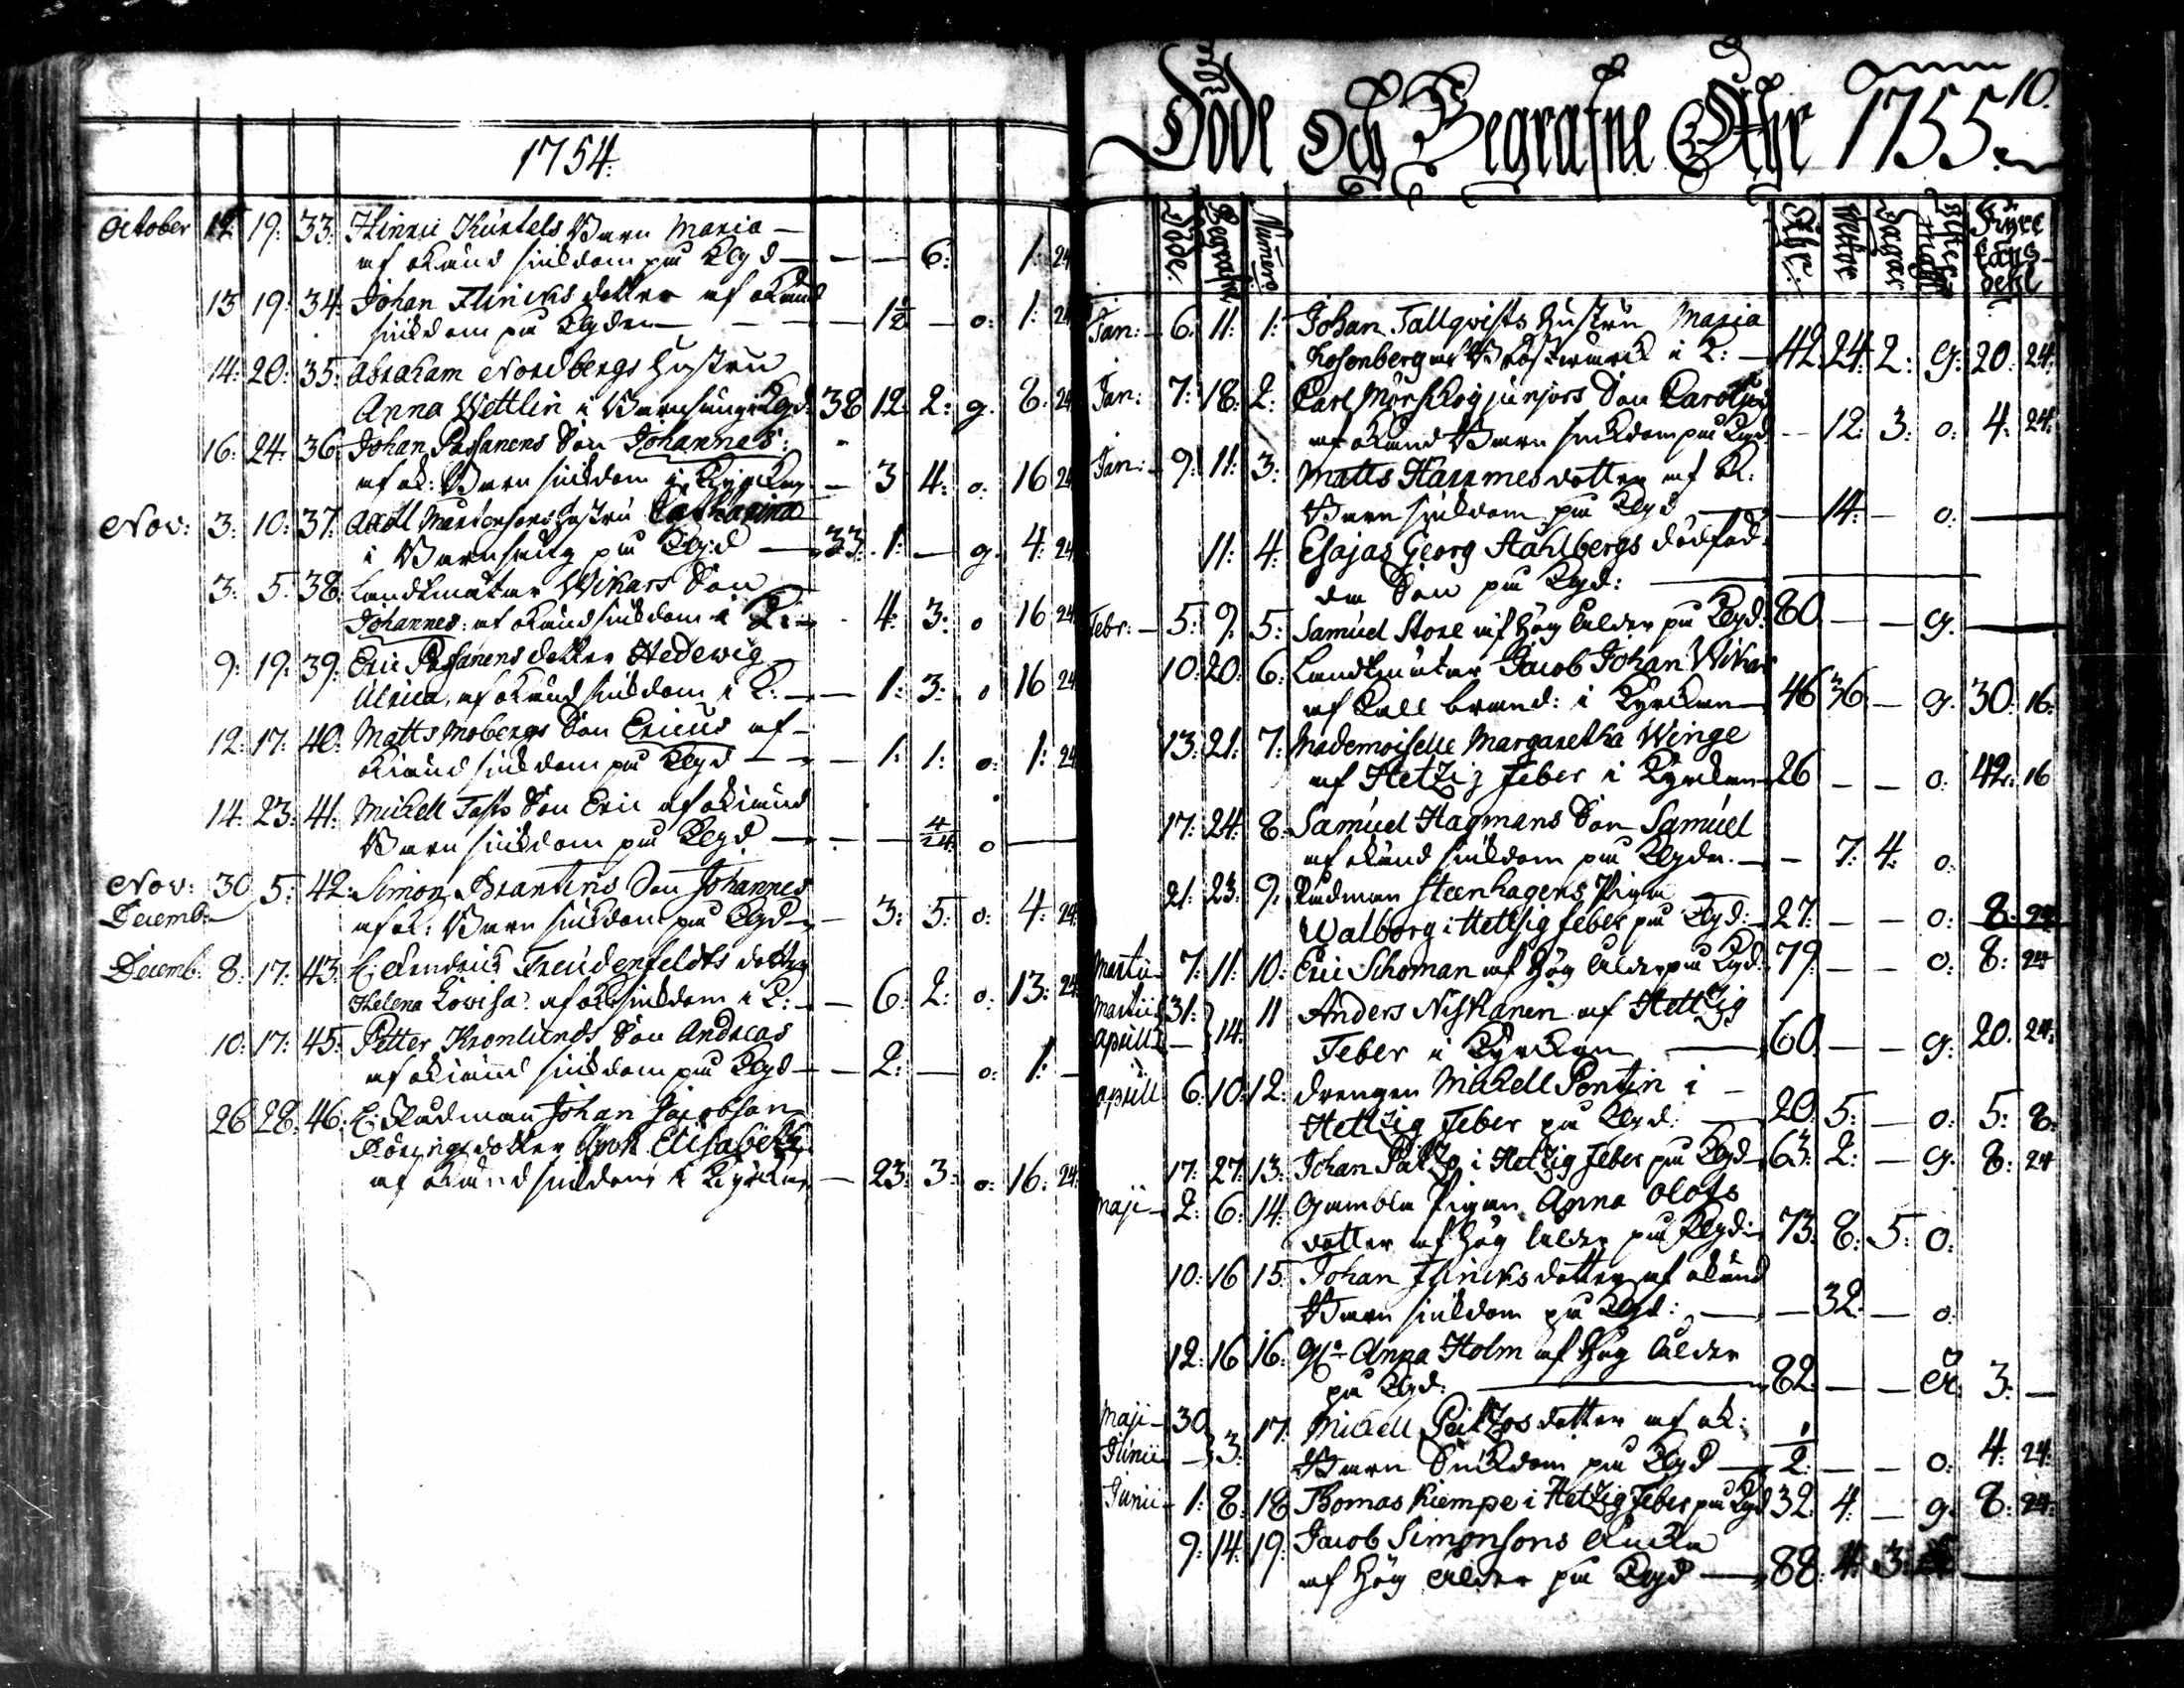 1754.
October 12. 19. 33. Hinric Kürtels Barn Maria —
af okänd siukdom på Kgd — — — 6. 1: 24
13 19: 34. Johan Flincks dotter af okänd
siukdom på Kgden — — — 1½ — o: 1: 24
14: 20: 35: Abraham Nordbergs Hustru
Anna Wettlin i Barnsäng Kgd: 38 12. 2: g. 8. 24
16: 24: 36. Johan Passanens Son Johannes:
af ok: Barn siukdom i Kyrckan — 3 4: o. 16 24
Nov: 3. 10: 37. Hustru Catharina
i Barnsäng på Kgd — 33. 1: — g. 4: 24
3. 5. 38. Landtmätar Wikars Son
Johannes: af okänd siukdom i K: — 4. 3: o 16 24
9: 19: 39: Eric Passanens dotter Hedewig
Ulrica, af okänd siukdom i K: — 1: 3: o 16 24
12: 17: 40. Matts Mobergs Son Ericus af —
okiänd siukdom på Kgd — — 1: 1: o: 1: 24
14: 23: 41. Michell Son Eric af okiänd
Barn siukdom på Kgd — — — 4/24 o —
Nov: 30 5: 42. Simon Brantins Son Johannes
Decemb:
af ok: Barn siukdom på Kgd — 3: 5: o: 4: 24
Decemb: 8: 17: 43. Freudenfeldts dotter
Helena Lovisa: af ok: siukdom i K: — 6: 2: o: 13: 24
10: 17: 45: Petter Kronlunds Son Andreas
af okiänd siukdom på Kgd — 2: — o: 1: —
26 28: 46. Rådman Johan Jacobson
dotter Elisabeth
af okänd siukdom i Kyrckan — 23: 3: o: 16: 24:
Döde och Begrafne Åhr 1755. 10.
Döde. Begrafne Numero Åhr: Wekor Dagar Kyrc
kans
dehl
Jan: — 6. 11: 1: Johan Tallqvists Hustru Maria
Rosenberg af Bröstwärck i K: — 42 24: 2: g: 20: 24:
Jan: 7: 18: 2: Carl Mörskog junjors Son Carolus
af okänd Barn siukdom på Kgd — 12: 3: o: 4: 24:
Jan: — 9: 11: 3. Matts Hammes dotter af ok:
Barn siukdom på Kgd — — 14: — o: —
11: 4: Esajas Georg Stahlbergs dödföd:
da Son på Kgd: —
Febr: — 5: 9: 5: Samuel Store af hög ålder på Kgd: 80 — — g. —
10: 20: 6: Landtmätar Jacob Johan Wikar
af Kall brand: i Kyrckan — 46 36 — g. 30: 16:
13: 21: 7: Mademoiselle Margaretha Winge
af Hetzig Feber i Kyrckan 26 — — o: 42: 16
17: 24: 8: Samuel Hagmans Son Samuel
af okänd siukdom på Kgden. — 7: 4: o.
21: 23: 9: Rådman Steenhagens Piga
Walborg i Hettsig feber på Kgd: — 27: — — o: 8: 24
Martii 7: 11: 10: Eric Schoman af hög ålder på Kgd: 79 — — o: 8: 24
Martii 31: 11 Anders Niskanen af Hettzig
Aprill — 14: Feber i Kyrckan — 60 — — g. 20. 24:
Aprill 6: 10: 12: drengen Michell Pontin i —
Hettzig Feber på Kgd: — 20: 5: — o: 5: 8:
17: 27: 13: Johan i Hetzig Feber på Kgd 63: 2: — g. 8: 24
Maji — 2: 6: 14: Gambla Pigan Anna Olofs
dotter af hög ålder på Kgd: 73 8: 5: o:
10: 16 15: Johan Flincks dotter af okänd
Barn siukdom på Kgd: — — 32: — o:
12: 16 16: Anna Holm af hög ålder
på Kgd: — 82: — — 3: —
Maji — 30 17: Michell dotter af ok:
Junii — 3: Barn Siukdom på Kgd — ½: — — o: 4: 24:
Junii — 1: 8: 18 Thomas Kiempe i Hetzig Feber på Kgd 32 4: — g. 8: 24:
9: 14: 19: Jacob Simonsons Änka
af hög ålder på Kgd — 88: 4: 3: —